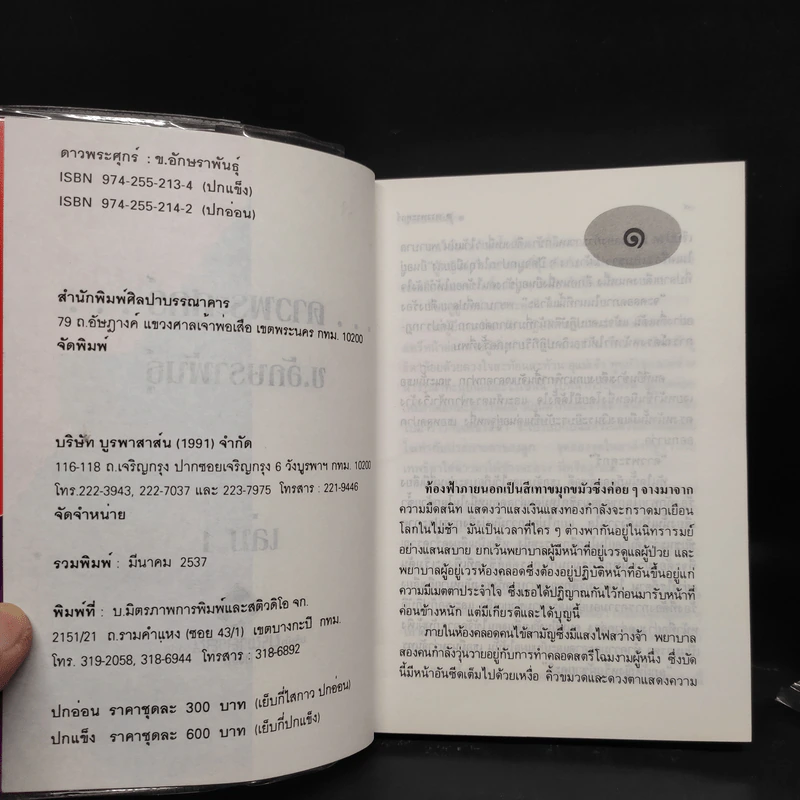 ดาวพระศุกร์ : ข.อักษราพันธุ์
ISBN 974-255-213-4 (ปกแข็ง)
ISBN 974-255-214-2 (ปกอ่อน)
สำนักพิมพ์ศิลปาบรรณาคาร
79 ถ.อัษฎางค์ แขวงศาลเจ้าพ่อเสือ เขตพระนคร กทม. 10200
จัดพิมพ์
บริษัท บูรพาสาส์น (1991) จำกัด
116-118 ถ.เจริญกรุง ปากซอยเจริญกรุง 6 วังบูรพาฯ กทม. 10200
โทร.222-3943, 222-7037 และ 223-7975 โทรสาร : 221-9446
จัดจำหน่าย
รวมพิมพ์ : มีนาคม 2537
พิมพ์ที่ : บ.มิตรภาพการพิมพ์และสติวดิโอ จก.
2151/21 ถ.รามคำแหง (ซอย 43/1) เขตบางกะปิ กทม.
โทร. 319-2058, 318-6944 โทรสาร : 318-6892
ปกอ่อน ราคาชุดละ 300 บาท (เย็บกี่ไสกาว ปกอ่อน)
ปกแข็ง ราคาชุดละ 600 บาท (เย็บกี่ปกแข็ง)
๑
ท้องฟ้าภายนอกเป็นสีเทาขมุกขมัวซึ่งค่อย ๆ จางมาจาก
ความมืดสนิท แสดงว่าแสงเงินแสงทองกำลังจะกราดมาเยือน
โลกในไม่ช้า มันเป็นเวลาที่ใคร ๆ ต่างพากันอยู่ในนิทรารมย์
อย่างแสนสบาย ยกเว้นพยาบาลผู้มีหน้าที่อยู่เวรดูแลผู้ป่วย และ
พยาบาลผู้อยู่เวรห้องคลอดซึ่งต้องอยู่ปฏิบัติหน้าที่อันขึ้นอยู่แก่
ความมีเมตตาประจำใจ ซึ่งเธอได้ปฏิญาณกันไว้ก่อนมารับหน้าที่
ค่อนข้างหนัก แต่มีเกียรติและได้บุญนี้
ภายในห้องคลอดคนไข้สามัญซึ่งมีแสงไฟสว่างจ้า พยาบาล
สองคนกำลังวุ่นวายอยู่กับการทำคลอดสตรีโฉมงามผู้หนึ่ง ซึ่งบัด
นี้มีหน้าอันซีดเต็มไปด้วยเหงื่อ คิ้วขมวดและดวงตาแสดงความ